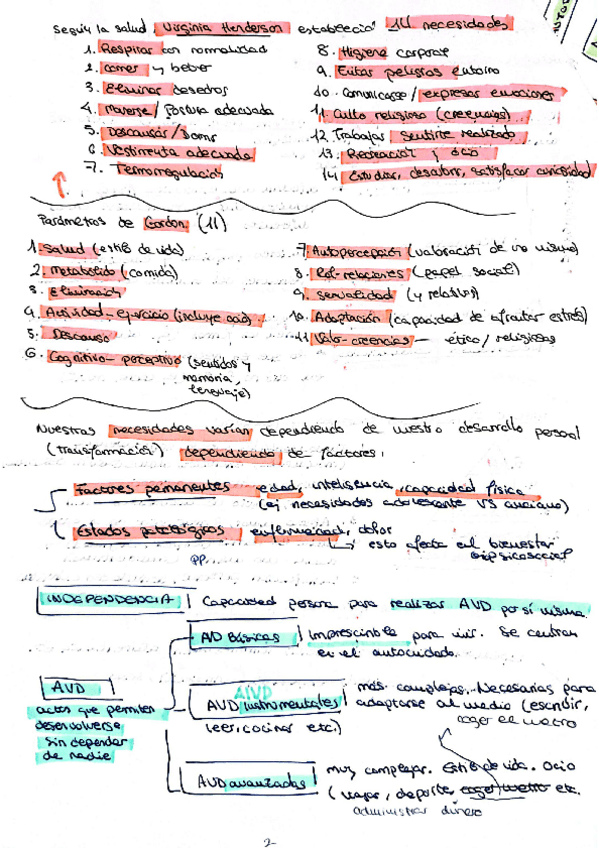 Según la salud Virginia Henderson establecía 14 necesidades
1. Respirar con normalidad
2. comer y beber
3. Eliminar desechos
4. Moverse / postura adecuada
5. Descansar / dormir
6. Vestimenta adecuada
7. Termorregulación
8. Higiene corporal
9. Evitar peligros entorno
10. Comunicarse / expresar emociones
11. Culto religioso (creencias)
12. Trabajar sentirse realizado
13. Recreación y ocio
14. Estudiar, descubrir, satisfacer curiosidad
Parámetros de Gordon (11)
1. Salud (estilo de vida)
2. Metabólico (comida)
3. Eliminación
4. Actividad - ejercicio (incluye ocio)
5. Descanso
6. Cognitivo - perceptivo (sentidos y
memoria,
lenguaje)
7. Autopercepción (valoración de uno mismo)
8. Rol-relaciones (papel social)
9. Sexualidad (y relativos)
10. Adaptación (capacidad de afrontar estrés)
11. Valor-creencias — ético / religiosas
Nuestras necesidades varían dependiendo de nuestro desarrollo personal
(transformación) dependiendo de factores:
Factores permanentes edad, inteligencia, capacidad física
(ej necesidades adolescente VS anciano)
Estados patológicos enfermedad, dolor
esto afecta en el bienestar
biopsicosocial
pp.
INDEPENDENCIA | Capacidad persona para realizar AVD por sí misma
AVD Básicas | Imprescindible para vivir. Se centran
en el autocuidado.
AVD
actos que permiten
desenvolverse
sin depender
de nadie
AIVD
AVD instrumentales
(leer, cocinar etc.)
más complejas. Necesarias para
adaptarse al medio (escribir,
coger el metro
AVD avanzadas
muy complejas. Estilo de vida. Ocio
(viajar, deporte, coger metro etc.
administrar dinero
2-